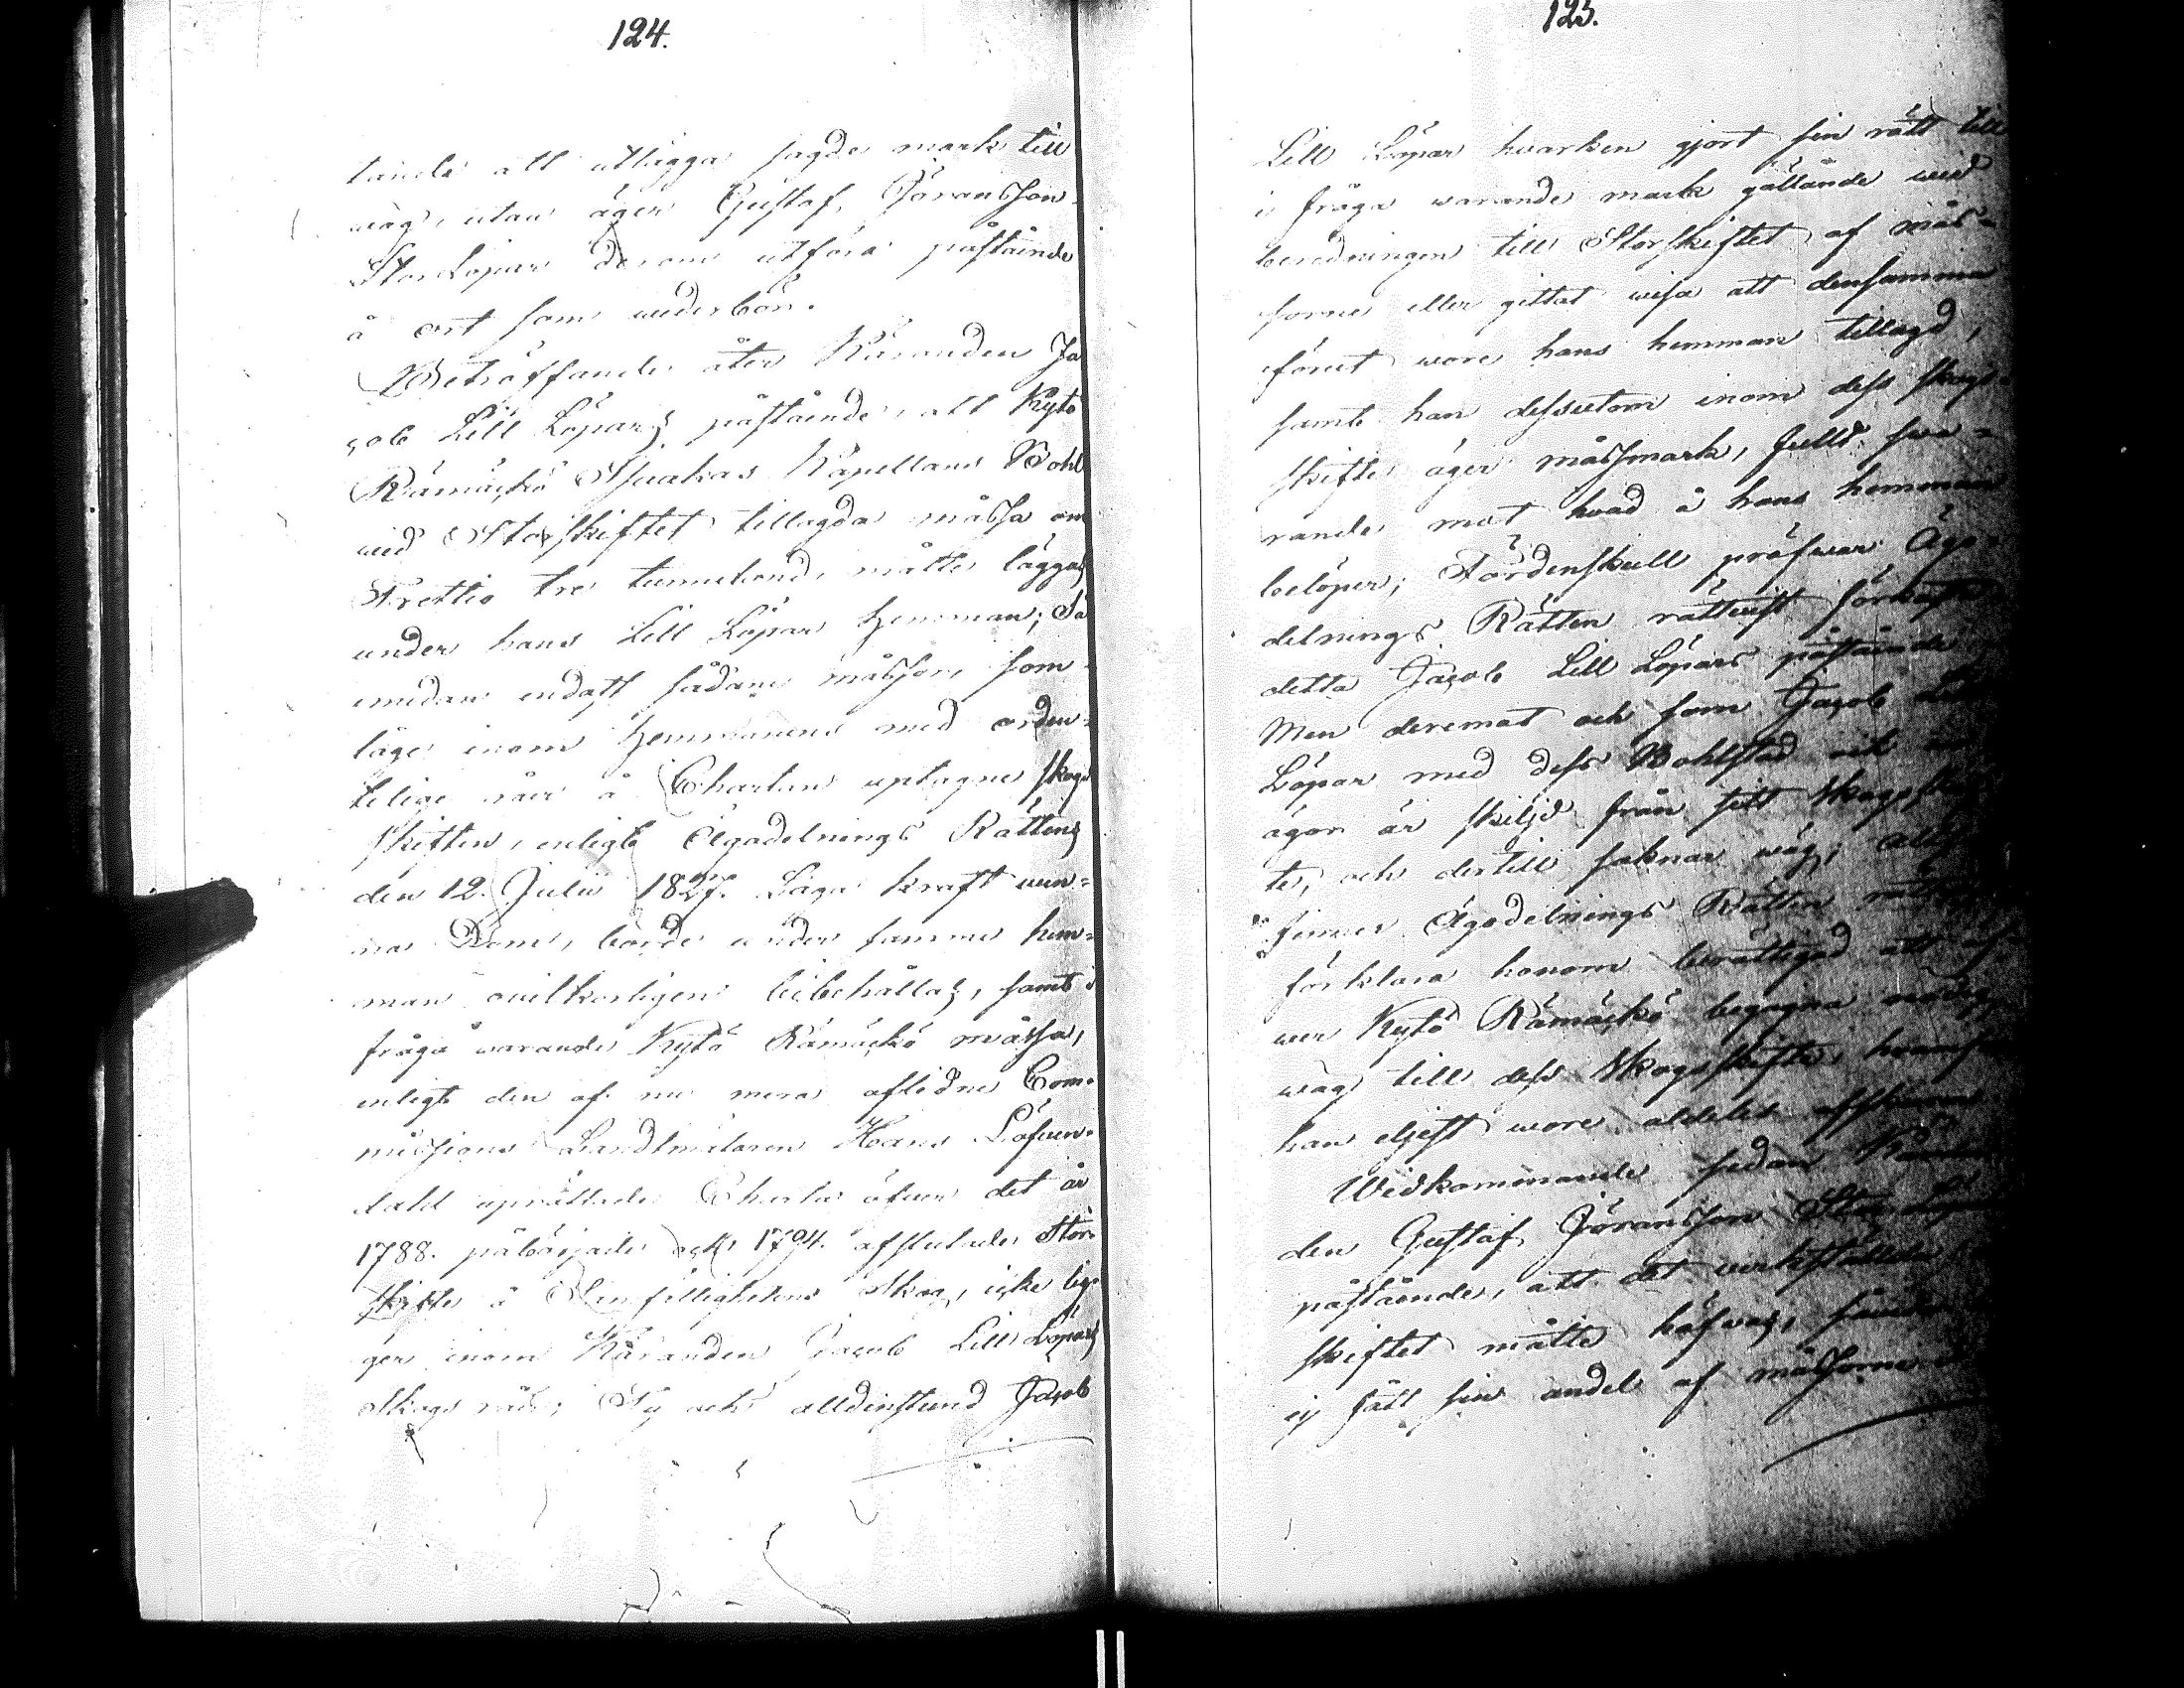 124.
tande att utlägga sagde mark till
wäg, utan äger Gustaf Göransson
Stor Löpar derom utföra påstående
å ort som wederbör.
Beträffande åter Käranden Ja
cob Lill Löpars påstående, att Kytö
Rämäckö Sjuakas Kapellans Bohl
wid Storskiftet tillagda måssa om
Trettio tre tunneland, måtte läggas
under hans Lill Löpar Hemman; Så
emedan endast sådane måssor, som
läge inom Hemmanens med orden-
telige råer å Chartan uptagne skogs
skiften, enligt Ägodelnings Rättens
den 12. Julii 1827. Laga kraft wun-
na Dom, borde under samma hem-
man owilkorligen bibehållas, samt i
fråga warande Kytö Rämäckö måssa,
enligt den af nu mera aflidne Com-
missions Landtmätaren Hans Löfwen-
dahl uprättade Charta öfwer det år
1788. påbörjade och 1794. afslutade Stor-
skifte å Menfällighetens Skog, icke lig-
ger inom Käranden Jacob Lill Löpars
Skogs råer; Ty och alldenstund Jacob
125.
Lill Löpar hwarken gjort sin rätt till
i fråga warande mark gällande wid
beredningen till Storskiftet af mås-
sorne eller gittat wisa att densamma
förut wore hans hemman tillagd,
samt han dessutom inom dess skogs-
skifte äger måssmark, fullt swa-
rande mot hwad å hans hemman
belöper; Fördenskull pröfwar Ägo-
delnings Rätten rättwist förkasta
detta Jacob Lill Löpars påstående
Men deremot och som Jacob Lill
Löpar med dess Bohlstad och
ägor är skiljd från sitt Skogsskif
te, och dertill saknar wäg; Ally
finner Ägodelnings Rätten
förklara honom berättigad att öf
wer Kytö Rämäckö begagna nödig
wäg till dess Skogsskifte, hwarfrån
han eljest wore aldeles afstängd
Widkommande sedan Käran
den Gustaf Göransson Stor Löpars
påstående, att det werkställda
skiftet måtte häfwas,
ej fått sin andel af måssorne